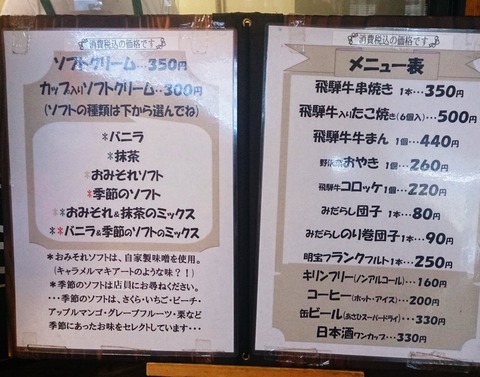 消費税込の価格です
ソフトクリーム…350円
カップ入りソフトクリーム…300円
(ソフトの種類は下から選んでね)
*バニラ
*抹茶
*おみそれソフト
*季節のソフト
**おみそれ&抹茶のミックス
**バニラ&季節のソフトのミックス
*おみそれソフトは、自家製味噌を使用。
(キャラメルマキアートのような味?!)
*季節のソフトは店員にお尋ねください。
・・・季節のソフトは、さくら・いちご・ピーチ・
アップルマンゴ・グレープフルーツ・栗など
季節にあったお味をセレクトしています・・・
消費税込の価格です
メニュー表
飛騨牛串焼き 1本…350円
飛騨牛入りたこ焼き(6個入)…500円
飛騨牛牛まん 1個…440円
野沢菜おやき 1個…260円
飛騨牛コロッケ 1個…220円
みだらし団子 1本…80円
みだらしのり巻団子 1本…90円
明宝フランクフルト 1本…250円
キリンフリー(ノンアルコール)…160円
コーヒー(ホット・アイス)…200円
缶ビール(あさひスーパードライ)…330円
日本酒ワンカップ…330円